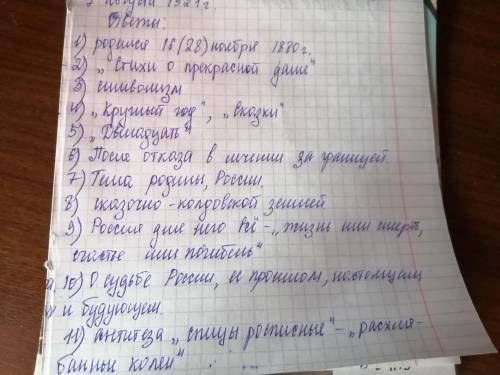 7 августа 1921 г.
Ответы.
1) родился 16 (28) ноября 1880 г.
2) „Стихи о прекрасной даме"
3) символизм
4) „Круглый год", „Сказки"
5) „Двенадцать"
6) После отказа в лечении за границей
7) Тема родины, России.
8) сказочно-колдовской землёй
9) Россия для него всё - „жизнь или смерть,
счастье или погибель"
10) О судьбе России, ее прошлом, настоящим
и будующем.
11) антитеза „спицы росписные" - „расхля-
банные колеи"